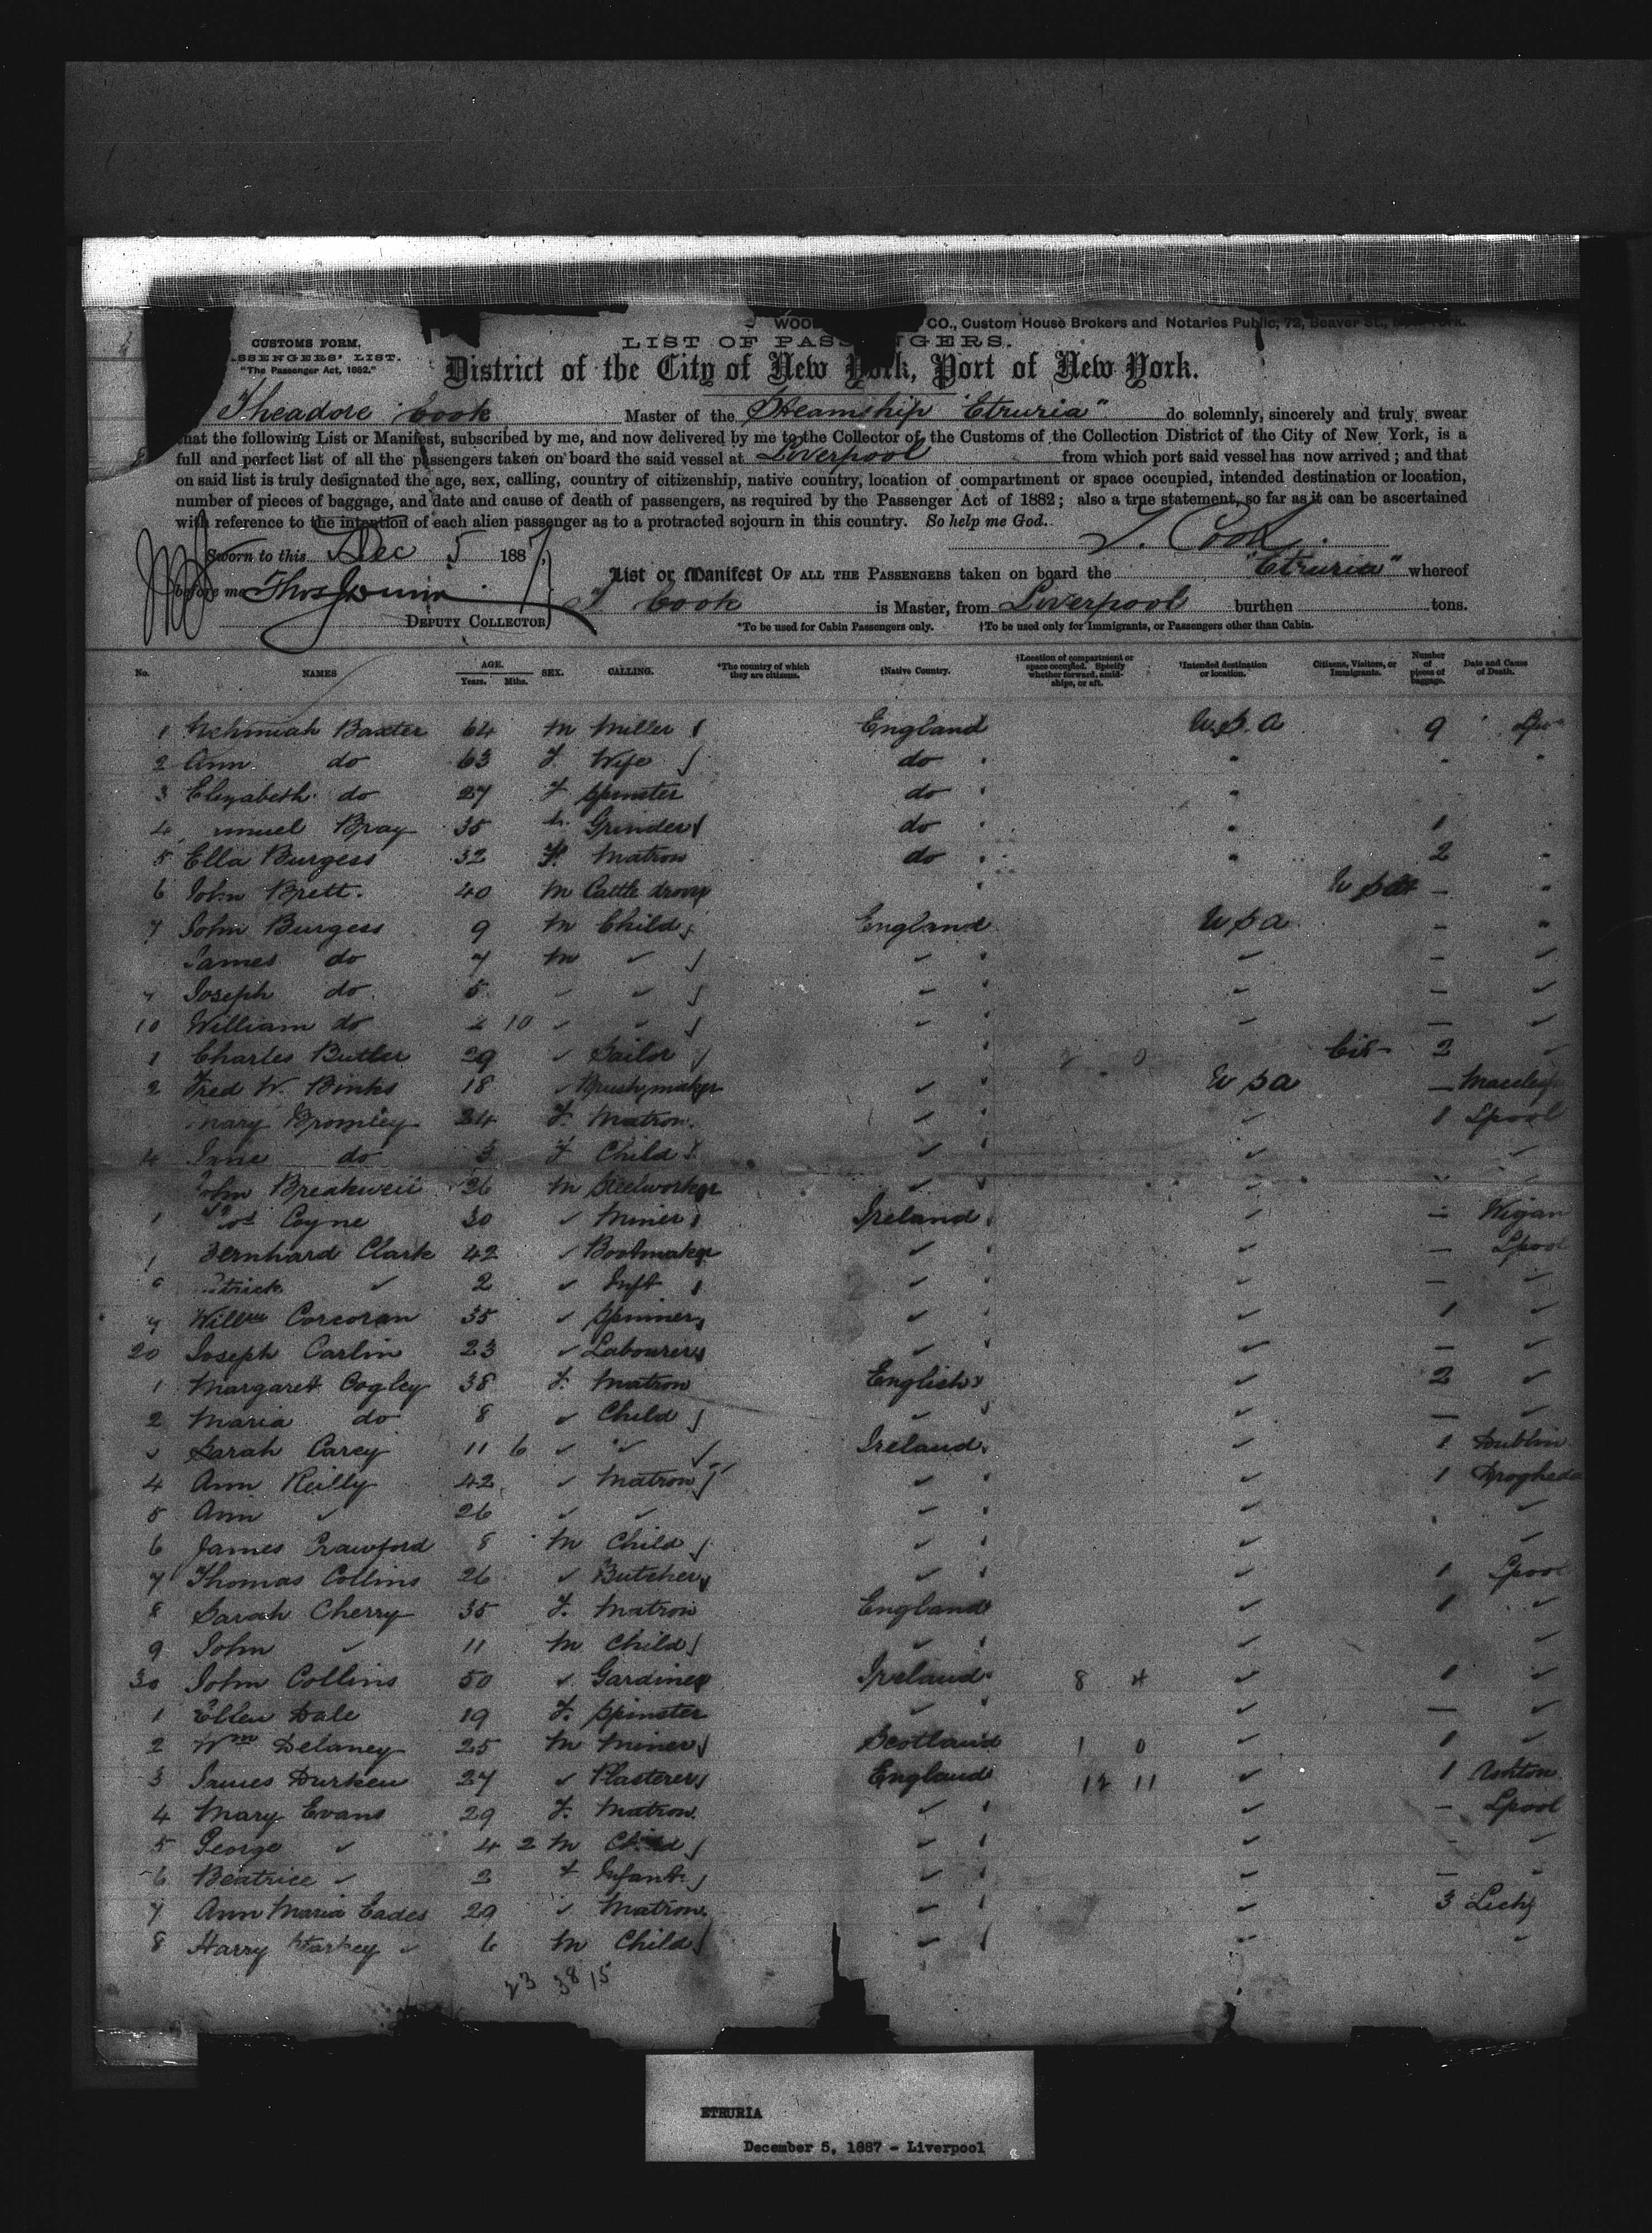 CO., Custom House Brokers and Notaries Public, 72, Beaver St., New York.
CUSTOMS FORM,
LIST OF PASSENGERS.
SSENGERS' LIST.
"The Passenger Act, 1882."
District of the City of New York, Port of New York.
Theadore Cook Master of the Steamship "Etruria" do solemnly, sincerely and truly swear
that the following List or Manifest, subscribed by me, and now delivered by me to the Collector of the Customs of the Collection District of the City of New York, is a
full and perfect list of all the passengers taken on board the said vessel at Liverpool from which port said vessel has now arrived; and that
on said list is truly designated the age, sex, calling, country of citizenship, native country, location of compartment or space occupied, intended destination or location,
number of pieces of baggage, and date and cause of death of passengers, as required by the Passenger Act of 1882; also a true statement, so far as it can be ascertained
with reference to the intention of each alien passenger as to a protracted sojourn in this country. So help me God.
T. Cook
Sworn to this Dec 5 1887,
List or Manifest OF ALL THE PASSENGERS taken on board the "Etruria" whereof
before me Thos
T Cook is Master, from Liverpool burthen tons.
DEPUTY COLLECTOR
*To be used for Cabin Passengers only. †To be used only for Immigrants, or Passengers other than Cabin.
No. NAMES AGE. Years. Mths. SEX. CALLING. *The country of which they are citizens. †Native Country. †Location of compartment or space occupied. Specify whether forward, amidships, or aft. †Intended destination or location. Citizens, Visitors, or Immigrants. Number of pieces of baggage. Date and Cause of Death.
1 Nehmiah Baxter 64 M Miller England U.S.A 9
2 Ann do 63 F Wife do "
3 Elizabeth do 27 F Spinster do "
4 muel Bray 35 Grinder do " 1
5 Ella Burgess 32 F. Matron do " 2 "
6 John Brett. 40 M Cattle drover — "
7 John Burgess 9 M Child England U S A — "
James do 7 M ✓ ✓ ✓ — ✓
Joseph do 5 ✓ ✓ ✓ ✓ — ✓
10 William do 2 10 ✓ ✓ ✓ ✓ — ✓
1 Charles Butler 29 ✓ Sailor Cit 2 ✓
2 Fred W. Binks 18 ✓ Brushmaker ✓ U S A —
Mary Bromley 24 F. Matron. ✓ ✓ 1 Lpool
4 Jane do 3 F Child ✓ ✓ ✓
John Breakwell 26 M Steelworker ✓ ✓
1 Coyne 30 ✓ Miner Ireland ✓ — Wigan
1 Bernhard Clark 42 ✓ Bootmaker ✓ ✓ — Lpool
trick ✓ 2 ✓ Inft ✓ ✓ — ✓
Willm Corcoran 35 ✓ Spinner ✓ ✓ 1 ✓
20 Joseph Carlin 23 ✓ Labourer ✓ ✓ — ✓
1 Margaret Cogley 38 F. Matron English ✓ 2 ✓
2 Maria do 8 ✓ Child ✓ ✓ — ✓
Sarah Carey 11 6 ✓ ✓ Ireland ✓ 1 Dublin
4 Ann Reilly 42 ✓ Matron ✓ ✓ 1 Drogheda
5 Ann ✓ 26 ✓ ✓ ✓ ✓ ✓
6 James Crawford 8 M Child ✓ ✓ ✓
7 Thomas Collins 26 ✓ Butcher ✓ ✓ 1 Lpool
8 Sarah Cherry 35 F. Matron England ✓ 1 ✓
9 John ✓ 11 M Child ✓ ✓ ✓
30 John Collins 50 ✓ Gardiner Ireland 8 4 ✓ 1 ✓
1 Ellen Dale 19 F. Spinster ✓ ✓ — ✓
2 Wm Delaney 25 M Miner Scotland 1 0 ✓ 1 ✓
3 James Durken 27 ✓ Plasterer England 11 ✓ 1 Ashton
4 Mary Evans 29 F. Matron ✓ ✓ — Lpool
5 George ✓ 4 2 M Child ✓ ✓ - ✓
6 Beatrice ✓ 2 F Infant ✓ ✓ — ✓
7 Ann Maria Eades 29 ✓ Matron ✓ ✓ 3
8 Harry ✓ 6 M Child ✓ ✓
23 38 15
ETRURIA
December 5, 1887 - Liverpool